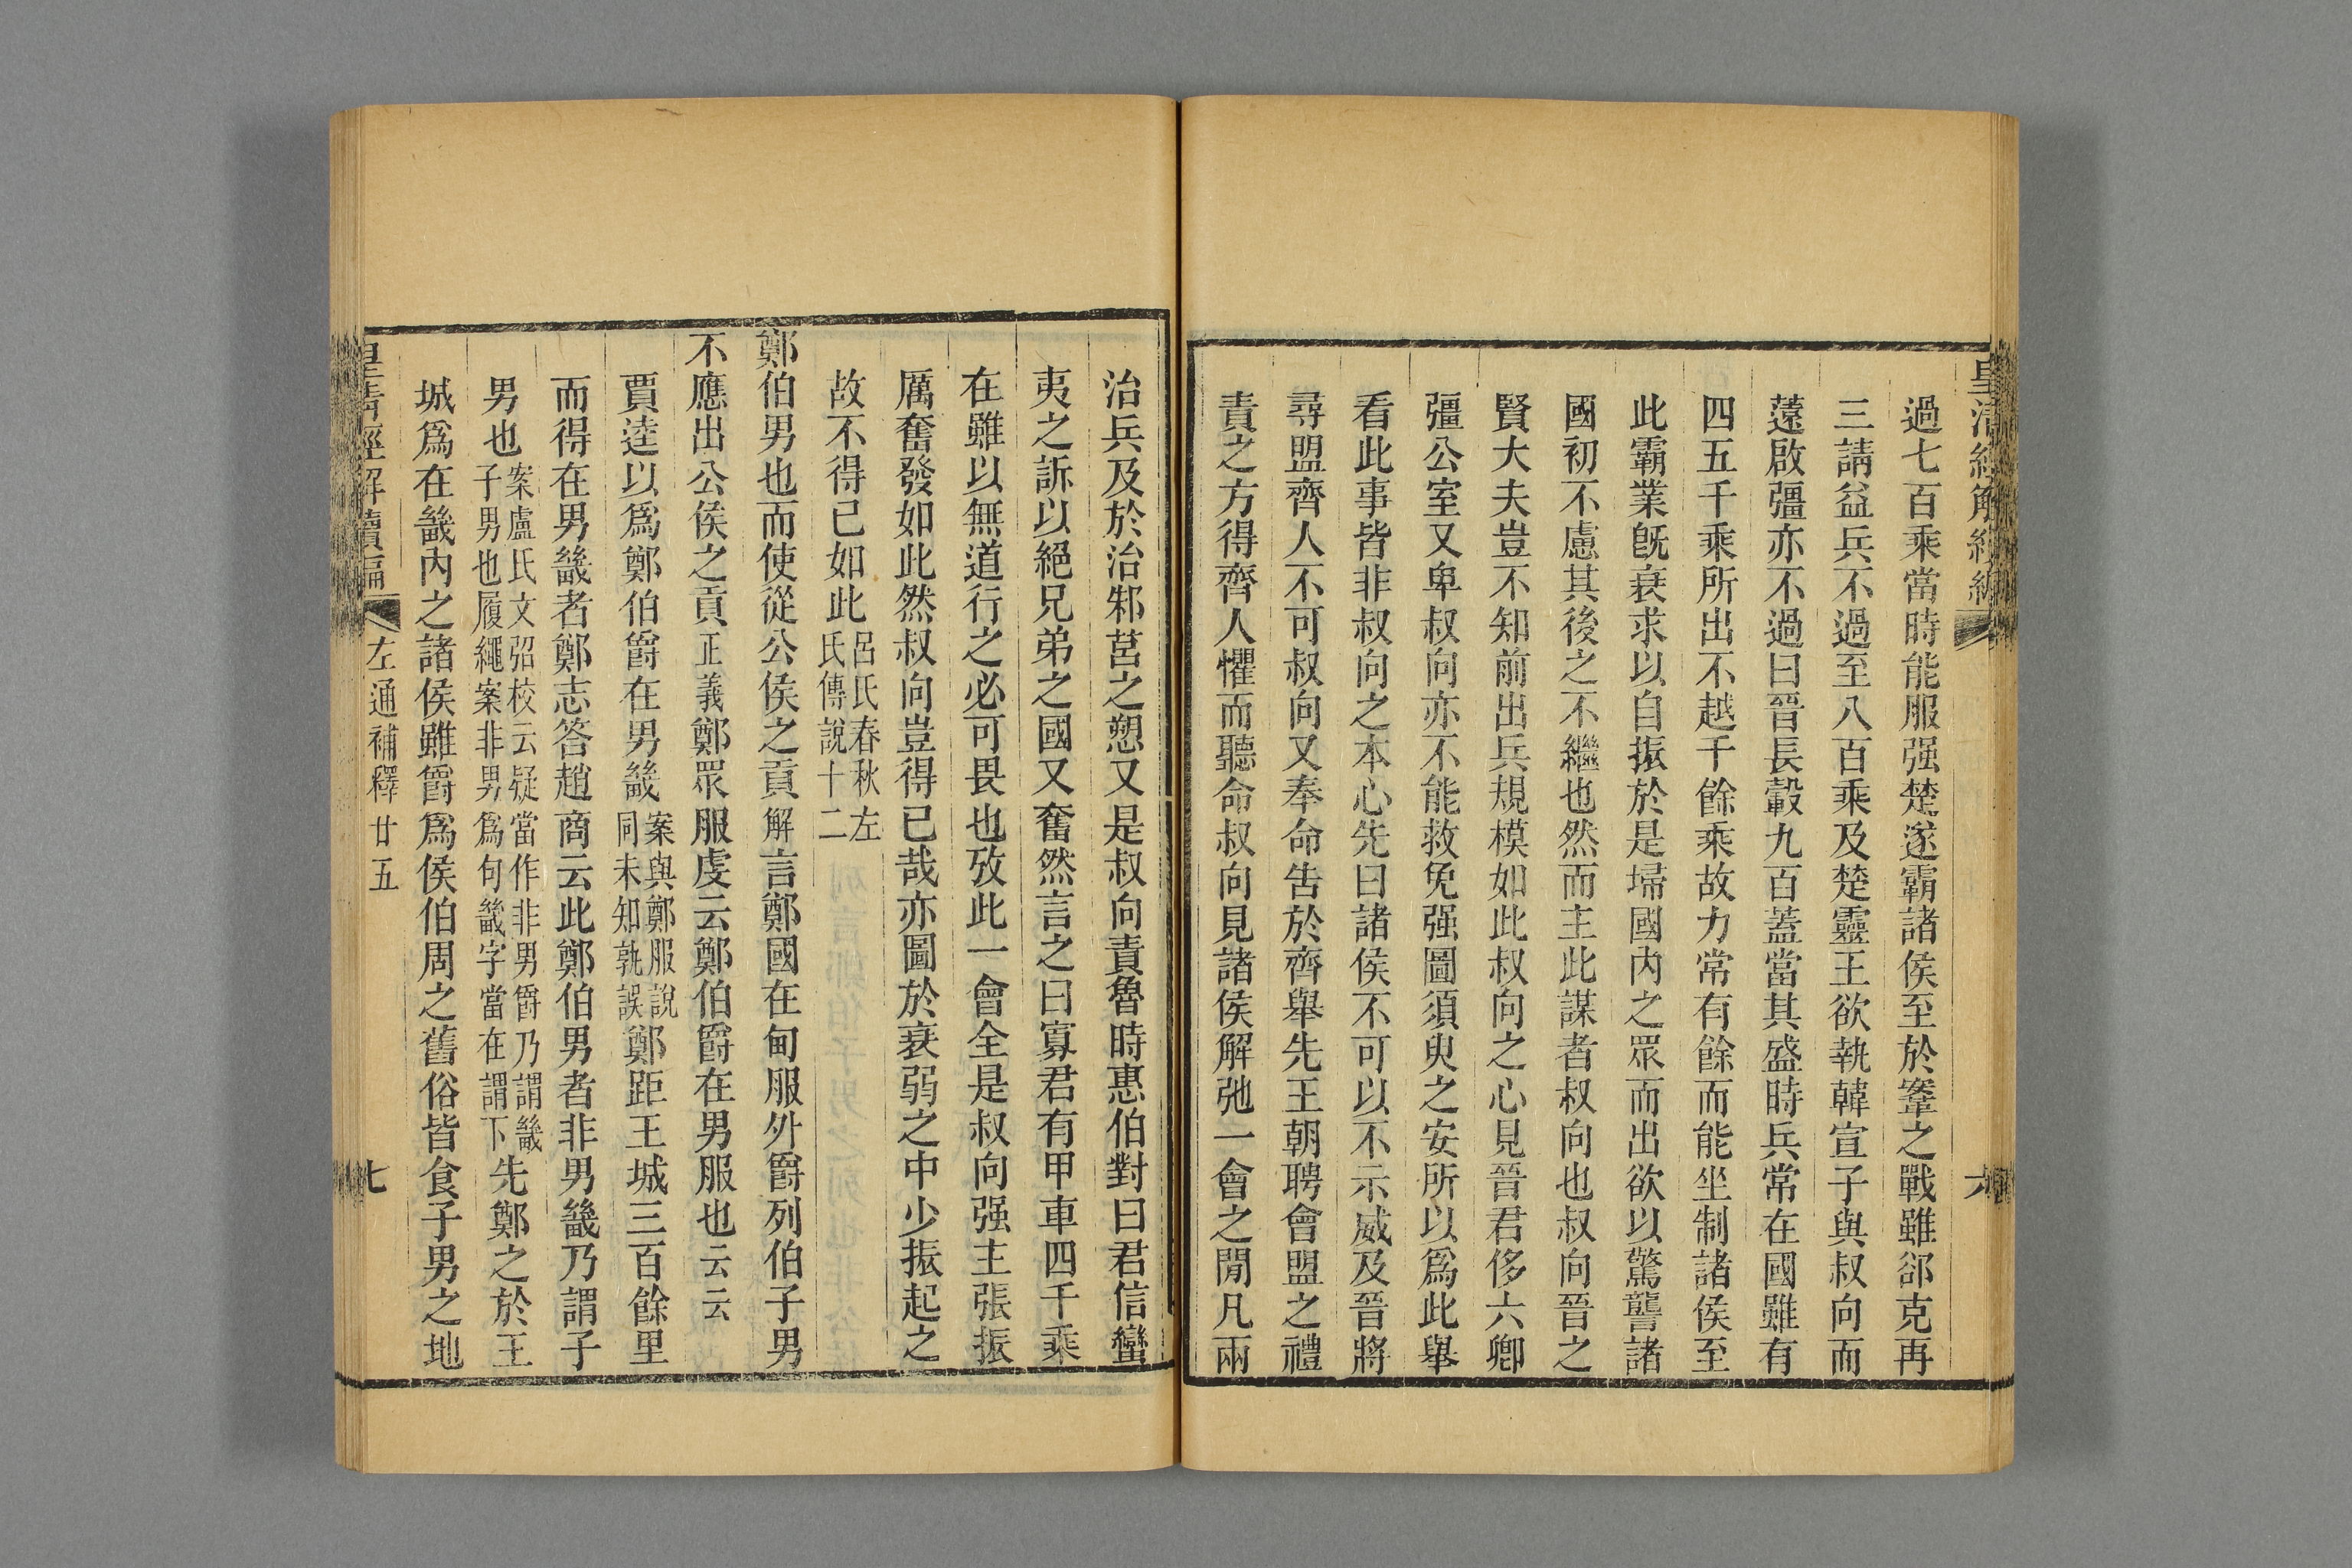 皇清經解續編
六
過七百乘當時能服强楚遂霸諸侯至於鞌之戰雖郤克再
三請益兵不過至八百乘及楚靈王欲執韓宣子與叔向而
薳啟彊亦不過曰晉長轂九百蓋當其盛時兵常在國雖有
四五千乘所出不越千餘乘故力常有餘而能坐制諸侯至
此霸業旣衰求以自振於是埽國內之眾而出欲以驚讋諸
國初不慮其後之不繼也然而主此謀者叔向也叔向晉之
賢大夫豈不知前出兵規模如此叔向之心見晉君侈六卿
彊公室又卑叔向亦不能救免强圖須臾之安所以爲此舉
看此事皆非叔向之本心先曰諸侯不可以不示威及晉將
尋盟齊人不可叔向又奉命告於齊舉先王朝聘會盟之禮
責之方得齊人懼而聽命叔向見諸侯解弛一會之閒凡兩
治兵及於治邾莒之愬又是叔向責魯時惠伯對曰君信蠻
夷之訴以絕兄弟之國又奮然言之曰寡君有甲車四千乘
在雖以無道行之必可畏也攷此一會全是叔向强主張振
厲奮發如此然叔向豈得已哉亦圖於衰弱之中少振起之
故不得已如此呂氏春秋左氏傳說十二
鄭伯男也而使從公侯之貢解言鄭國在甸服外爵列伯子男
不應出公侯之貢正義鄭眾服虔云鄭伯爵在男服也云云
賈逵以爲鄭伯爵在男畿案與鄭服說同未知孰誤鄭距王城三百餘里
而得在男畿者鄭志答趙商云此鄭伯男者非男畿乃謂子
男也案盧氏文弨校云疑當作非男爵乃謂畿子男也履繩案非男爲句畿字當在謂下先鄭之於王
城爲在畿內之諸侯雖爵爲侯伯周之舊俗皆食子男之地
皇清經解續編
左通補釋廿五
七